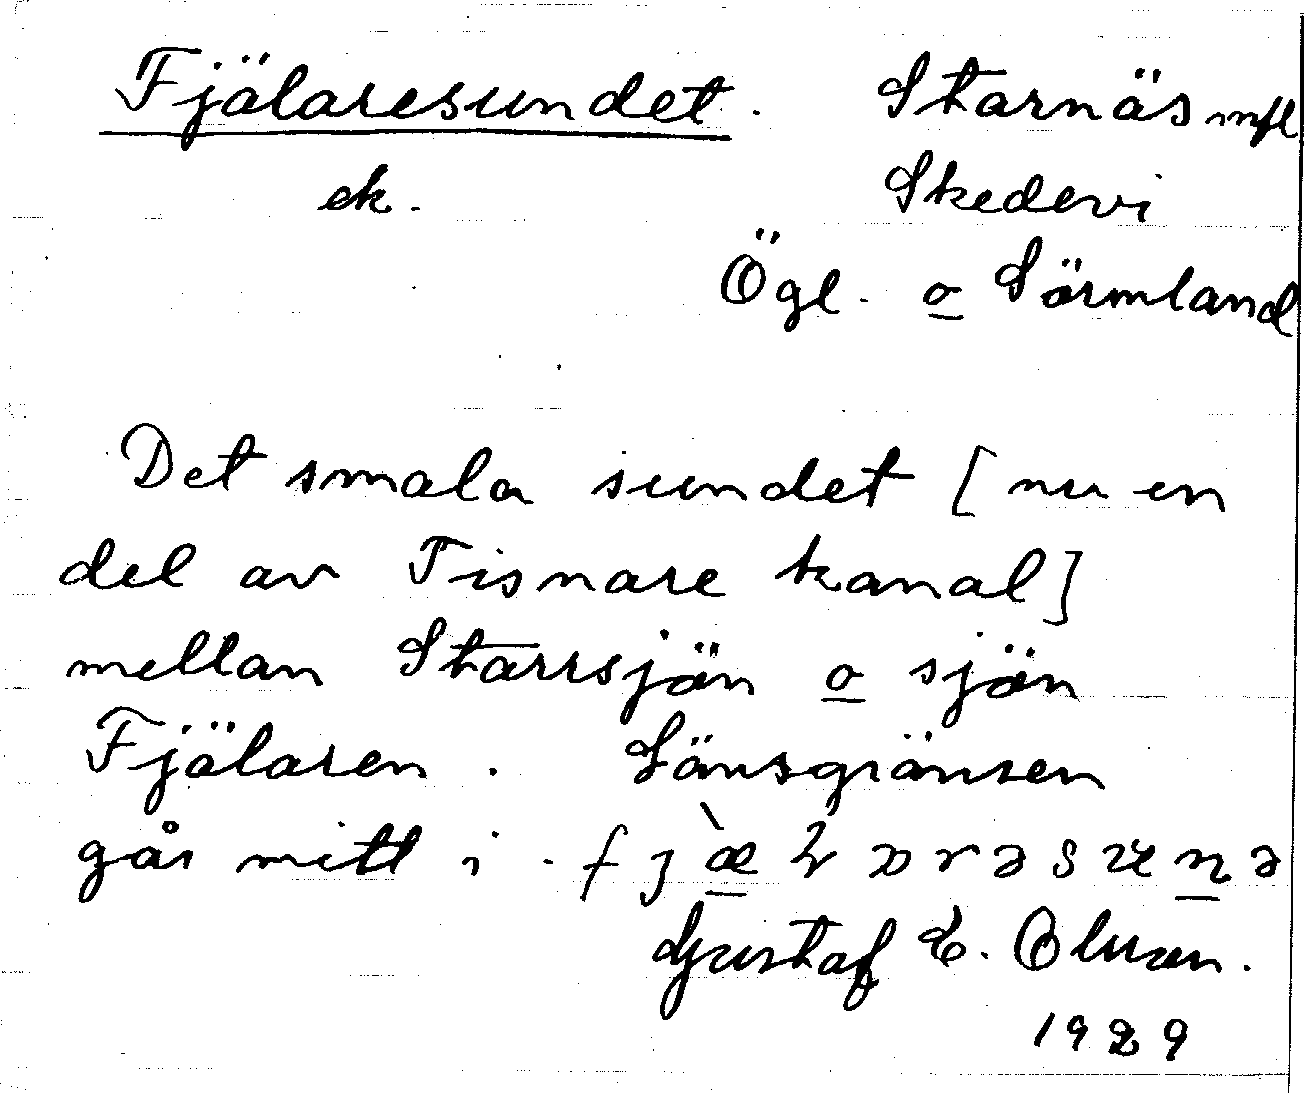 Fjälaresundet. Starnäs mfl
ek. Skedevi
Ögl. o Sörmland
Det smala sundet [nu en
del av Tisnare kanal]
mellan Starrsjön o sjön
Fjälaren. Länsgränsen
går mitt i.
Gustaf E. Olsson.
1929